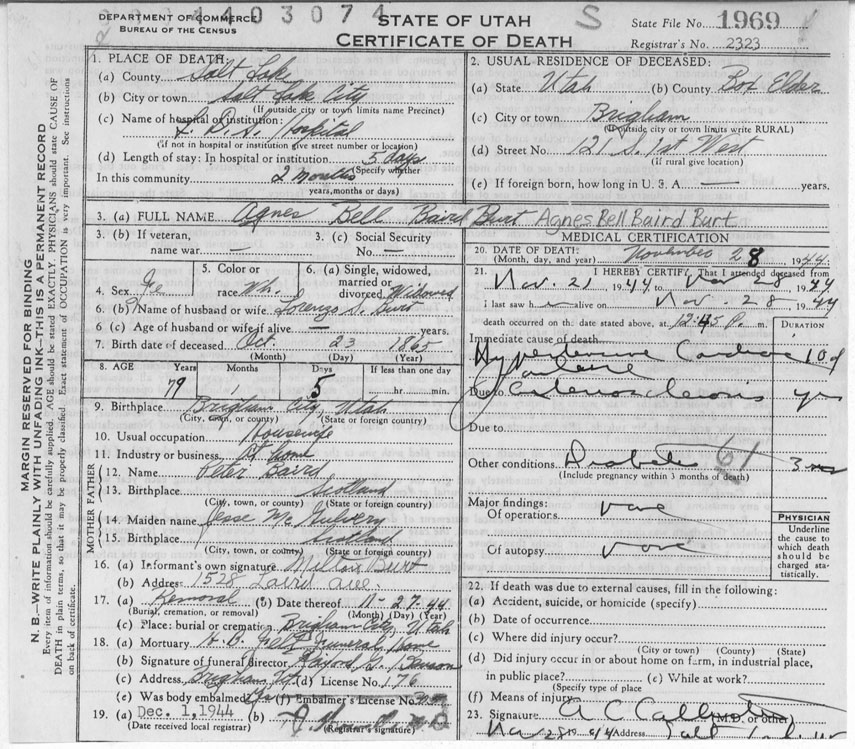 DEPARTMENT OF COMMERCE
BUREAU OF THE CENSUS
403074
STATE OF UTAH
CERTIFICATE OF DEATH
S
State File No. 1969
Registrar's No. 2323
MARGIN RESERVED FOR BINDING
N. B.—WRITE PLAINLY WITH UNFADING INK—THIS IS A PERMANENT RECORD
Every item of information should be carefully supplied. AGE should be stated EXACTLY. PHYSICIANS should state CAUSE OF
DEATH in plain terms, so that it may be properly classified. Exact statement of OCCUPATION is very important. See instructions
on back of certificate.
1. PLACE OF DEATH:
(a) County Salt Lake
(b) City or town Salt Lake City
(If outside city or town limits name Precinct)
(c) Name of hospital or institution:
L. D. S. Hospital
(If not in hospital or institution give street number or location)
(d) Length of stay: In hospital or institution 5 days
(Specify whether
In this community 2 months
years, months or days)
2. USUAL RESIDENCE OF DECEASED:
(a) State Utah (b) County Box Elder
(c) City or town Brigham
(If outside city or town limits write RURAL)
(d) Street No. 121 S. 1st West
(If rural give location)
(e) If foreign born, how long in U. S. A. — years.
3. (a) FULL NAME Agnes Bell Baird Burt Agnes Bell Baird Burt
3. (b) If veteran,
name war —
3. (c) Social Security
No. —
4. Sex Fe
5. Color or
race Wh.
6. (a) Single, widowed,
married or
divorced Widowed
6. (b) Name of husband or wife Lorenzo S. Burt
6. (c) Age of husband or wife if alive — years.
7. Birth date of deceased Oct. 23 1865
(Month) (Day) (Year)
8. AGE Years Months Days If less than one day
79 1 5 hr. min.
9. Birthplace Brigham City, Utah
(City, town, or county) (State or foreign country)
10. Usual occupation Housewife
11. Industry or business At home
FATHER
12. Name Peter Baird
13. Birthplace Scotland
(City, town, or county) (State or foreign country)
MOTHER
14. Maiden name Jesse
15. Birthplace Scotland
(City, town, or county) (State or foreign country)
16. (a) Informant's own signature Milton Burt
(b) Address 1528 Laird Ave
17. (a) Removal (b) Date thereof 11-27-44
(Burial, cremation, or removal) (Month) (Day) (Year)
(c) Place: burial or cremation Brigham City, Utah
18. (a) Mortuary Funeral Home
(b) Signature of funeral director
(c) Address Brigham (d) License No. 176
(e) Was body embalmed? Yes (f) Embalmer's License No.
19. (a) Dec. 1, 1944 (b)
(Date received local registrar) (Registrar's signature)
MEDICAL CERTIFICATION
20. DATE OF DEATH:
(Month, day, and year) November 28, 1944.
21. I HEREBY CERTIFY, That I attended deceased from
Nov. 21, 1944 to Nov 28, 1944
I last saw h alive on Nov. 28 1944
death occurred on the date stated above, at 12:45 P. m.
DURATION
Immediate cause of death
Hypertensive Cardiac 10 d
failure
Due to arteriosclerosis yrs
Due to
Other conditions Diabetes 61
(Include pregnancy within 3 months of death)
Major findings:
Of operations none
Of autopsy none
PHYSICIAN
Underline
the cause to
which death
should be
charged sta-
tistically.
22. If death was due to external causes, fill in the following:
(a) Accident, suicide, or homicide (specify)
(b) Date of occurrence
(c) Where did injury occur?
(City or town) (County) (State)
(d) Did injury occur in or about home on farm, in industrial place,
in public place? (c) While at work?
(Specify type of place
(f) Means of injury
23. Signature A C Callister
(M.D. or other)
Nov 28 1944 Address Salt